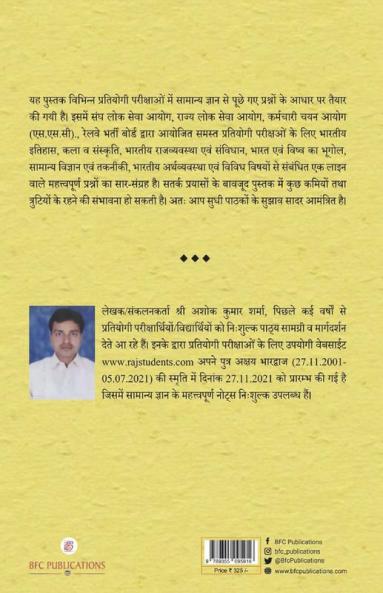 यह पुस्तक विभिन्न प्रतियोगी परीक्षाओं में सामान्य ज्ञान से पूछे गए प्रश्नों के आधार पर तैयार
की गयी है। इसमें संघ लोक सेवा आयोग, राज्य लोक सेवा आयोग, कर्मचारी चयन आयोग
(एस.एस.सी)., रेलवे भर्ती बोर्ड द्वारा आयोजित समस्त प्रतियोगी परीक्षओं के लिए भारतीय
इतिहास, कला व संस्कृति, भारतीय राजव्यवस्था एवं संविधान, भारत एवं विश्व का भूगोल,
सामान्य विज्ञान एवं तकनीकी, भारतीय अर्थव्यवस्था एवं विविध विषयों से संबंधित एक लाइन
वाले महत्त्वपूर्ण प्रश्नों का सार-संग्रह है। सतर्क प्रयासों के बावजूद पुस्तक में कुछ कमियों तथा
त्रुटियों के रहने की संभावना हो सकती है। अतः आप सुधी पाठकों के सुझाव सादर आमंत्रित है।
लेखक/संकलनकर्ता श्री अशोक कुमार शर्मा, पिछले कई वर्षों से
प्रतियोगी परीक्षार्थियों/विद्यार्थियों को निःशुल्क पाठ्य सामग्री व मार्गदर्शन
देते आ रहे हैं। इनके द्वारा प्रतियोगी परीक्षाओं के लिए उपयोगी वेबसाईट
www.rajstudents.com अपने पुत्र अक्षय भारद्वाज (27.11.2001-
05.07.2021) की स्मृति में दिनांक 27.11.2021 को प्रारम्भ की गई है
जिसमें सामान्य ज्ञान के महत्त्वपूर्ण नोट्स निःशुल्क उपलब्ध हैं।
BFC PUBLICATIONS
Price ₹ 325 /-
BFC Publications
bfc_publications
@BfcPublications
www.bfcpublications.com